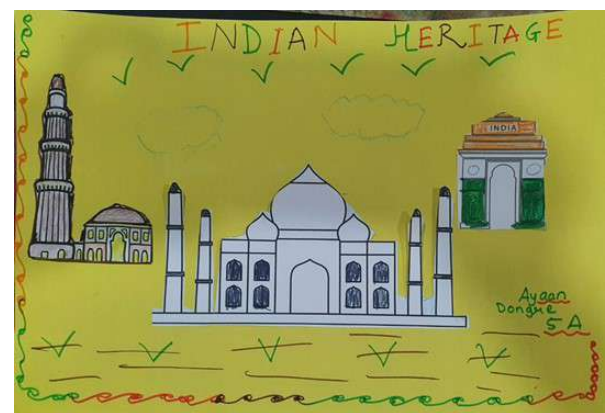 INDIAN HERITAGE
INDIA
Ayaan
Dongre
5 A